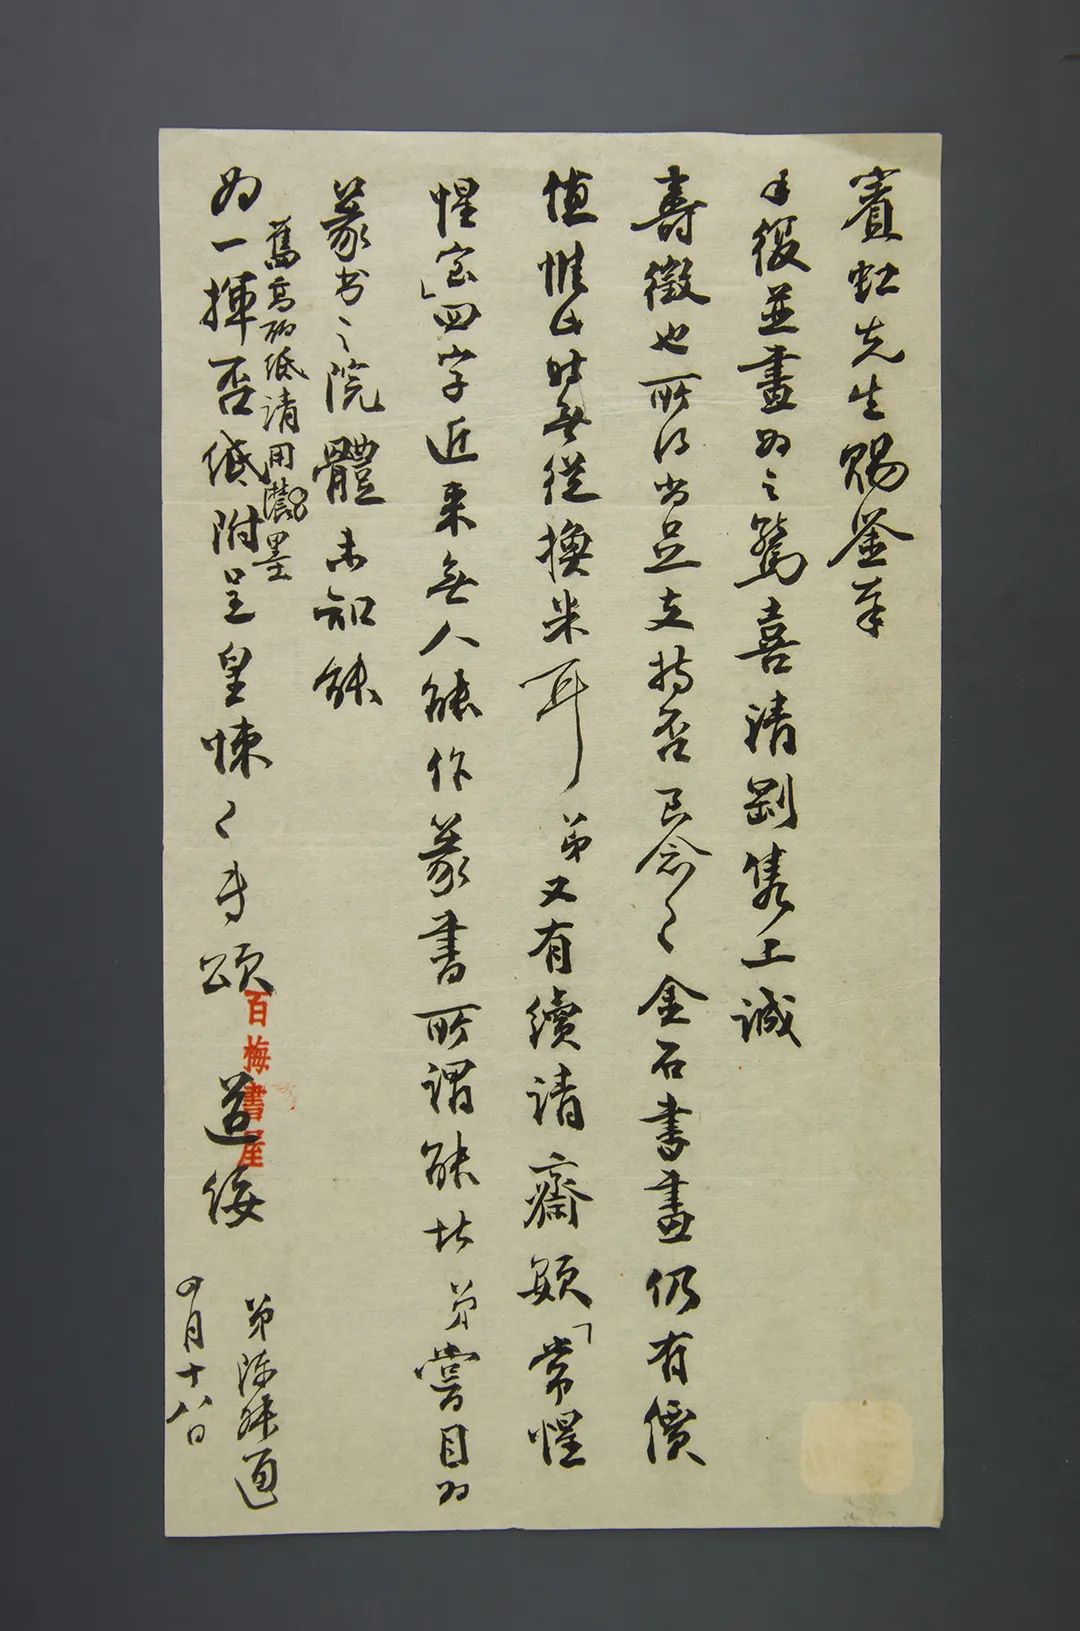 賓虹先生賜鑒奉
手復並畫為之驚喜清剛雋上誠
壽徵也所得尚足支持否至念〻金石書畫仍有價
值惟此時無從換米耳弟又有續請齋額「常惺
惺室」四字近來無人能作篆書所謂能者弟嘗目為
篆書之院體未知能
舊高丽紙請用濃墨
為一揮否紙附呈皇悚〻専頌
道綏
弟陳叔通
四月十八日
百梅書屋